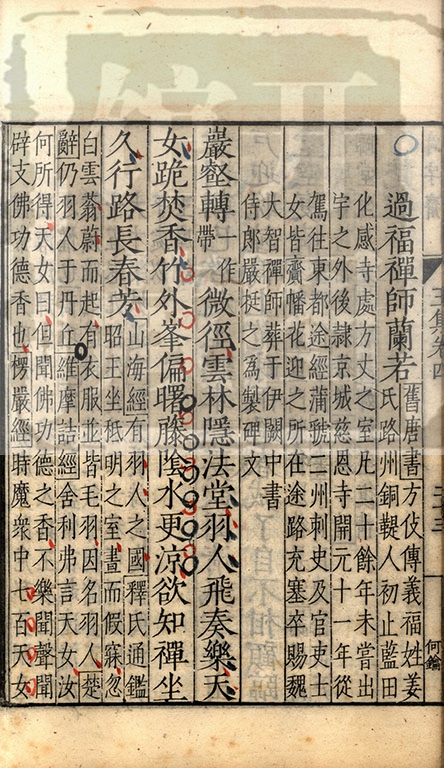 過福禪師蘭若
舊唐書方伎傳義福姓姜
氏路州銅鞮人初止藍田
化感寺處方丈之室凡二十餘年未嘗出
宇之外後隸京城慈恩寺開元十一年從
駕往東都途經蒲虢二州刺史及官吏士
女皆齎幡花迎之所在途路充塞卒賜號
大智禪師葬于伊闕中書
侍郎嚴挺之為製碑文
巖壑轉一作帶微徑雲林隱法堂羽人飛奏樂天
女跪焚香竹外峯偏曙藤陰水更涼欲知禪坐
久行路長春芳
山海經有羽人之國釋氏通鑑
昭王坐秪明之室晝而假寐忽
白雲蓊蔚而起有衣服並皆毛羽因名羽人楚
辭仍羽人于丹丘維摩詰經舍利弗言天女汝
何所得天女曰但聞佛功德之香不樂聞聲聞
辟支佛功德香也楞嚴經時魔衆中七百天女